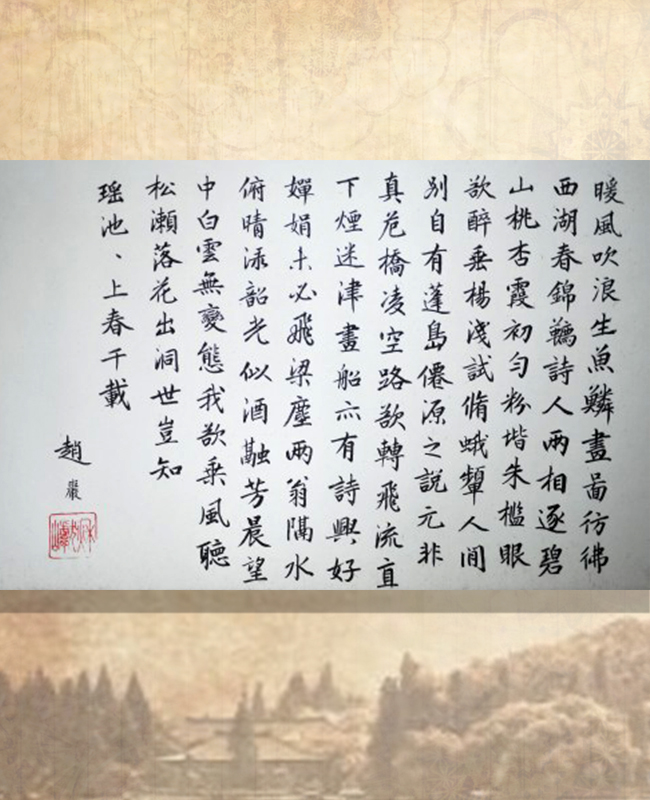 暖風吹浪生魚鱗畫啚彷彿
西湖春錦韉詩人兩相逐碧
山桃杏霞初勻粉堦朱檻眼
欲醉垂楊淺試脩蛾顰人間
別自有蓬島僊源之說元非
真危橋凌空路欲轉飛流直
下煙迷津畫船亦有詩興好
嬋娟未必飛梁塵兩翁隔水
俯晴淥韶光似酒融芳晨望
中白雲無變態我欲乘風聽
松瀨落花出洞世豈知
瑤池、上春千載
趙巖